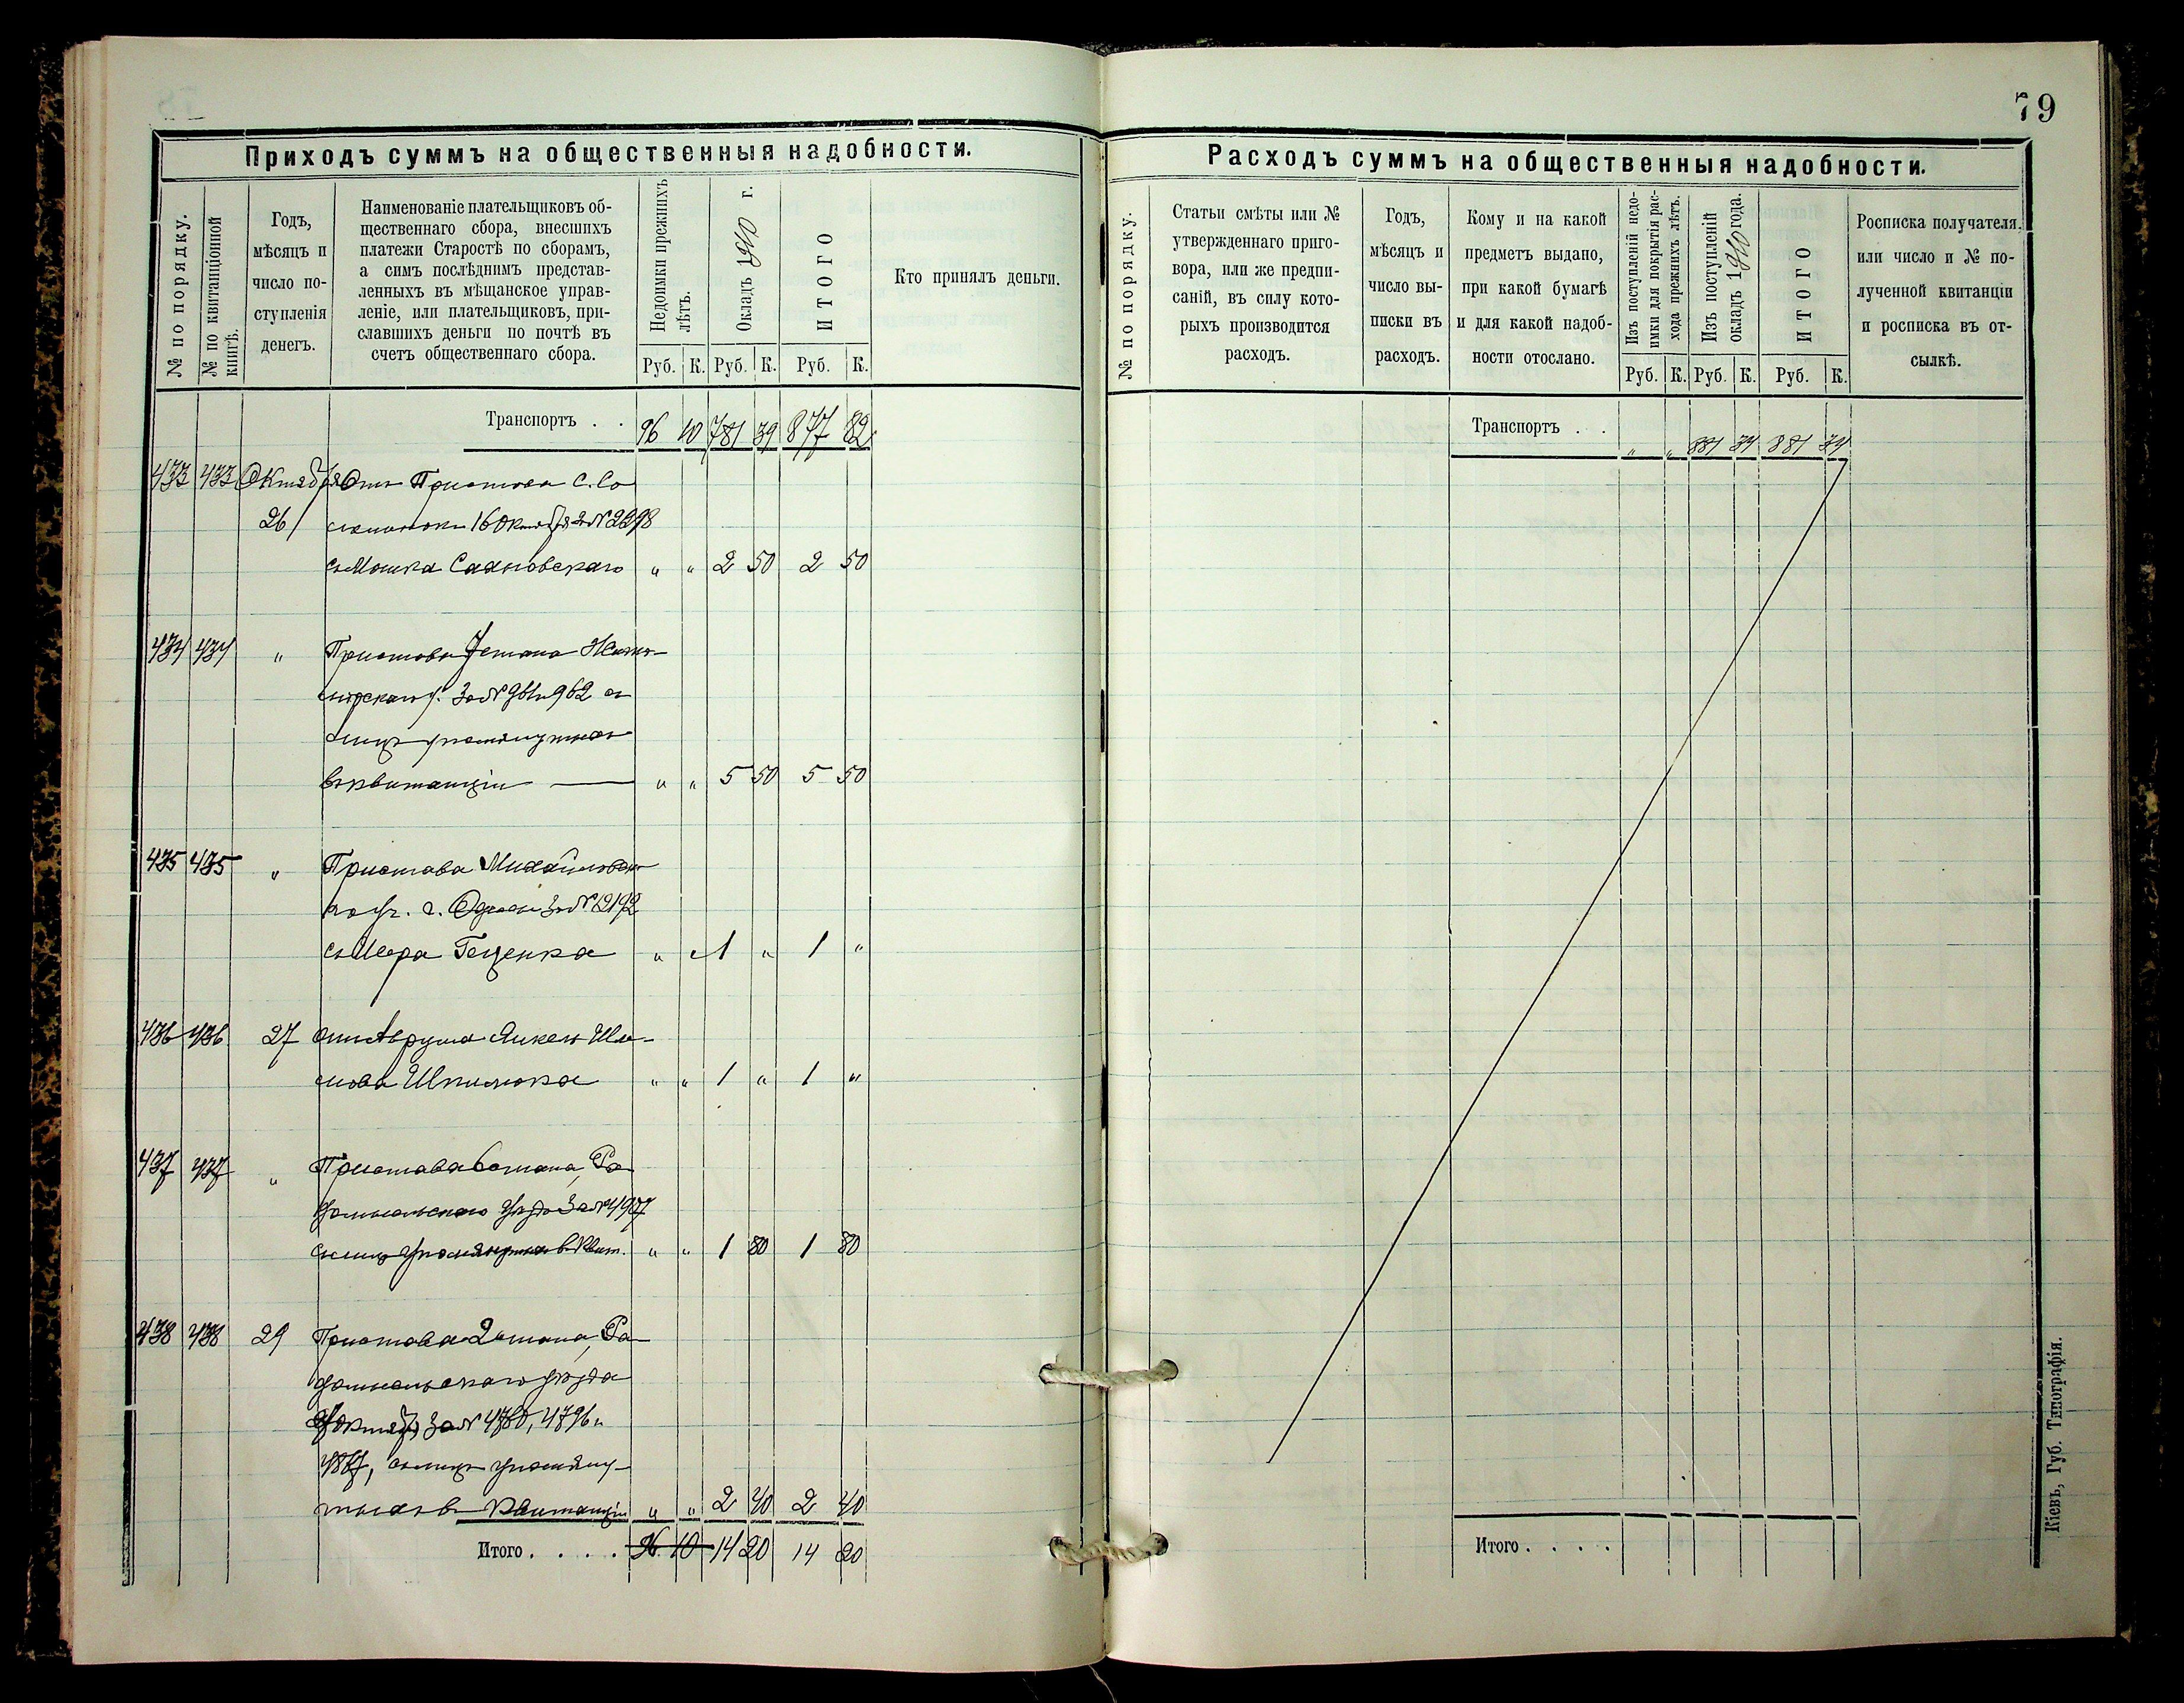 79
Приходъ суммъ на общественныя надобности.
№ по порядку.
№ по квитанціонной
книгѣ.
Годъ,
мѣсяцъ и
число по-
ступленія
денегъ.
Наименованіе плательщиковъ об-
щественнаго сбора, внесшихъ
платежи Старостѣ по сборамъ,
а симъ послѣднимъ представ-
ленныхъ въ мѣщанское управ-
леніе, или плательщиковъ, при-
славшихъ деньги по почтѣ въ
счетъ общественнаго сбора.
Недоимки прежнихъ
лѣтъ.
Окладъ 1910 г.
ИТОГО
Руб. К. Руб. К. Руб. К.
Кто принялъ деньги.
Транспортъ . . 96 10 781 39 877 82
433 433 Октября Отъ Пристова с. Со
26 16 Октября за № 2298
съ Мошка Сахновскаго " " 2 50 2 50
434 434 " Пристова 7 стана Жито-
мірскаго у. За № 961 и 962 съ
лицъ упомянутыхъ
въ квитанціи — " " 5 50 5 50
435 435 " Пристава Михайловска
го уч. г. Одессы за № 12192
съ Меера Геценка " " 1 " 1 "
436 436 27 отъ Аврума Янкеля Шло-
мова Шпилюка " " 1 " 1 "
437 437 " Пристава 6 стана, Ра
домысльскаго уѣзда За № 4907
съ лицъ упомянутыхъ в Квит. " " 1 80 1 80
438 438 29 Пристава 2 стана, Ра-
домысльскаго уѣзда
Октября за № 4780, 4796 и
4867, съ лицъ упомяну-
тыхъ въ Квитанціи " " 2 40 2 40
Итого . . . . 96 10 14 20 14 20
Расходъ суммъ на общественныя надобности.
№ по порядку.
Статьи смѣты или №
утвержденнаго приго-
вора, или же предпи-
саній, въ силу кото-
рыхъ производится
расходъ.
Годъ,
мѣсяцъ и
число вы-
писки въ
расходъ.
Кому и на какой
предметъ выдано,
при какой бумагѣ
и для какой надоб-
ности отослано.
Изъ поступленій недо-
имки для покрытія рас-
хода прежнихъ лѣтъ.
Изъ поступленій
окладъ 1910 года.
ИТОГО
Руб. К. Руб. К. Руб. К.
Росписка получателя,
или число и № по-
лученной квитанціи
и росписка въ от-
сылкѣ.
Транспортъ . . " " 881 74 881 74
Итого . . . .
Кіевъ, Губ. Типографія.